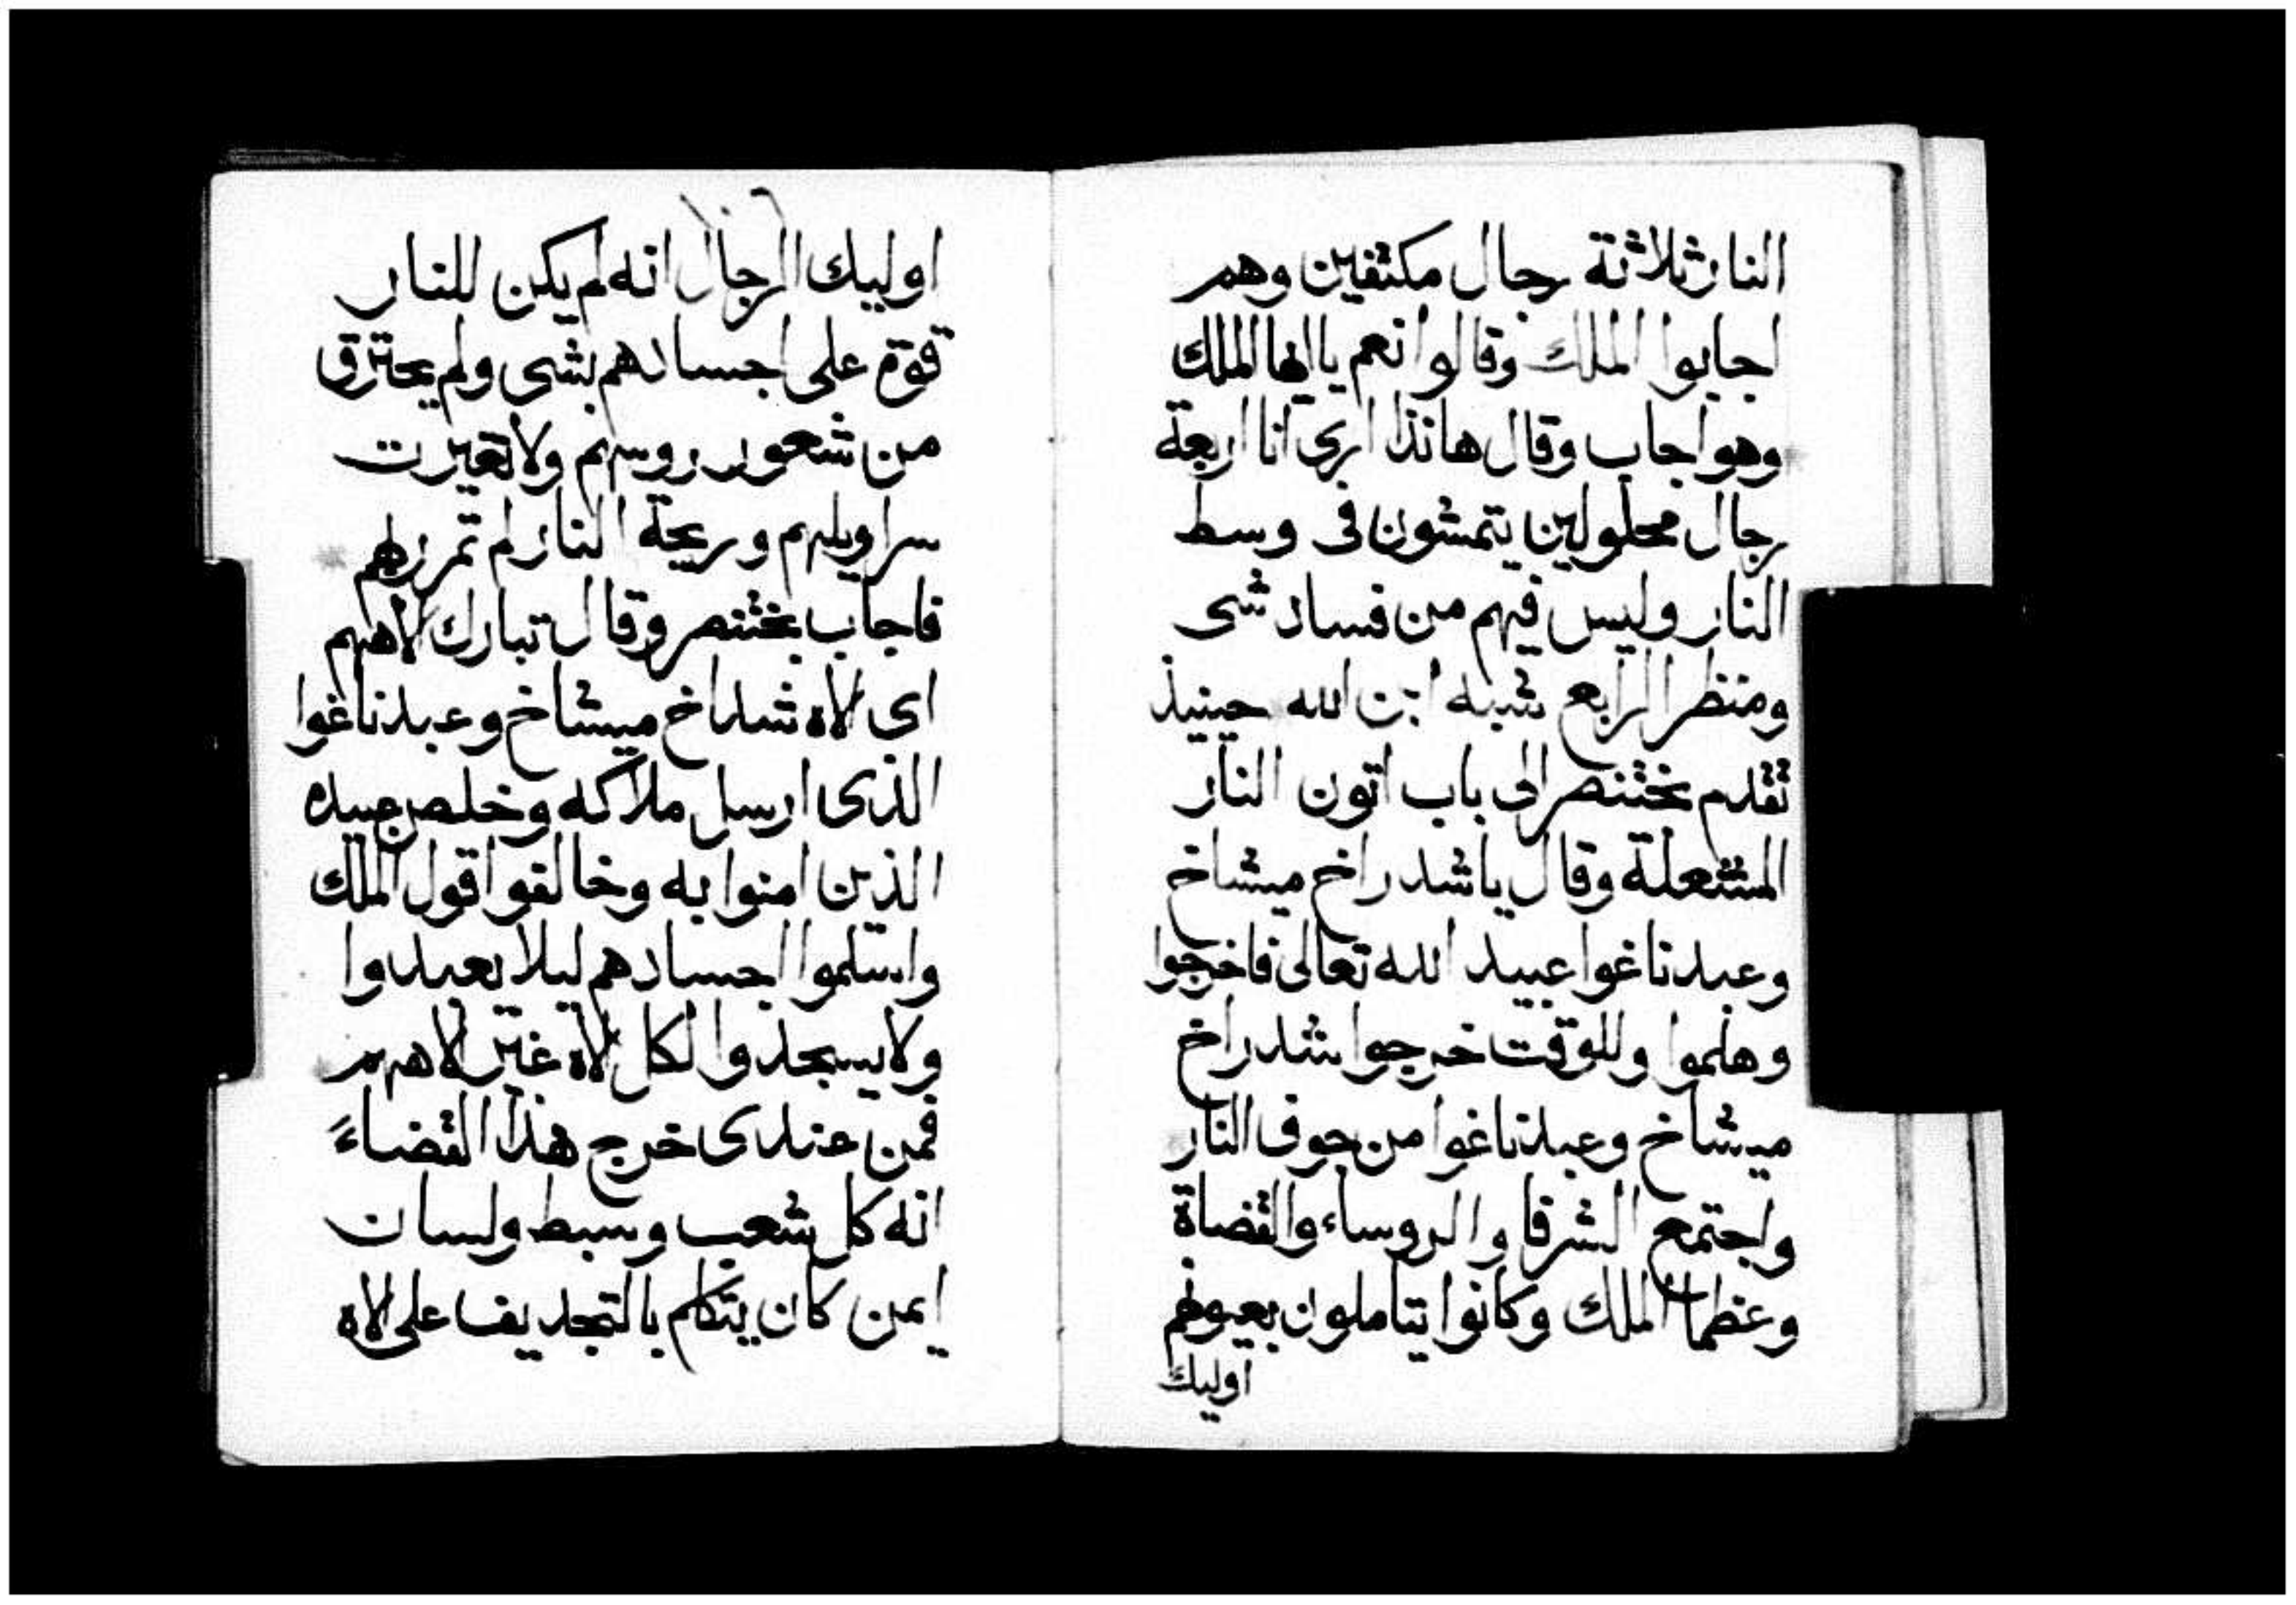 النار ثلاثة رجال مكتفين وهم
اجابوا الملك وقالوا نعم يا ايها الملك
وهو اجاب وقال هانذا اري انا اربعة
رجال محلولين يتمشون في وسط
النار وليس فيهم من فساد شي
ومنظر الرابع شبه ابن الله حينيذ
تقدم بختنصر الى باب اتون النار
المشتعلة وقال يا شدراخ ميشاخ
وعبدناغوا عبيد الله تعالى فاخرجوا
وهلموا وللوقت خرجوا شدراخ
ميشاخ وعبدناغوا من جوف النار
واجتمع الشرفا والروساء والقضاة
وعظما الملك وكانوا يتاملون بعيونهم
اوليك
اوليك الرجال انه لم يكن للنار
قوة على اجسادهم بشى ولم يحترق
من شعور روسهم ولا تغيرت
سراويلهم وريحة النار لم تمرر لهم
فاجاب بختنصر وقال تبارك لاههم
اى لاه شدراخ ميشاخ وعبدناغوا
الذى ارسل ملاكه وخلص عبيده
الذين امنوا به وخالفوا قول الملك
واسلموا اجسادهم ليلا يعبدوا
ولا يسجدوا لكل لاه غير لاههم
فمن عندى خرج هذا القضاء
انه كل شعب وسبط ولسان
ايمن كان يتكلم بالتجديف على لاه